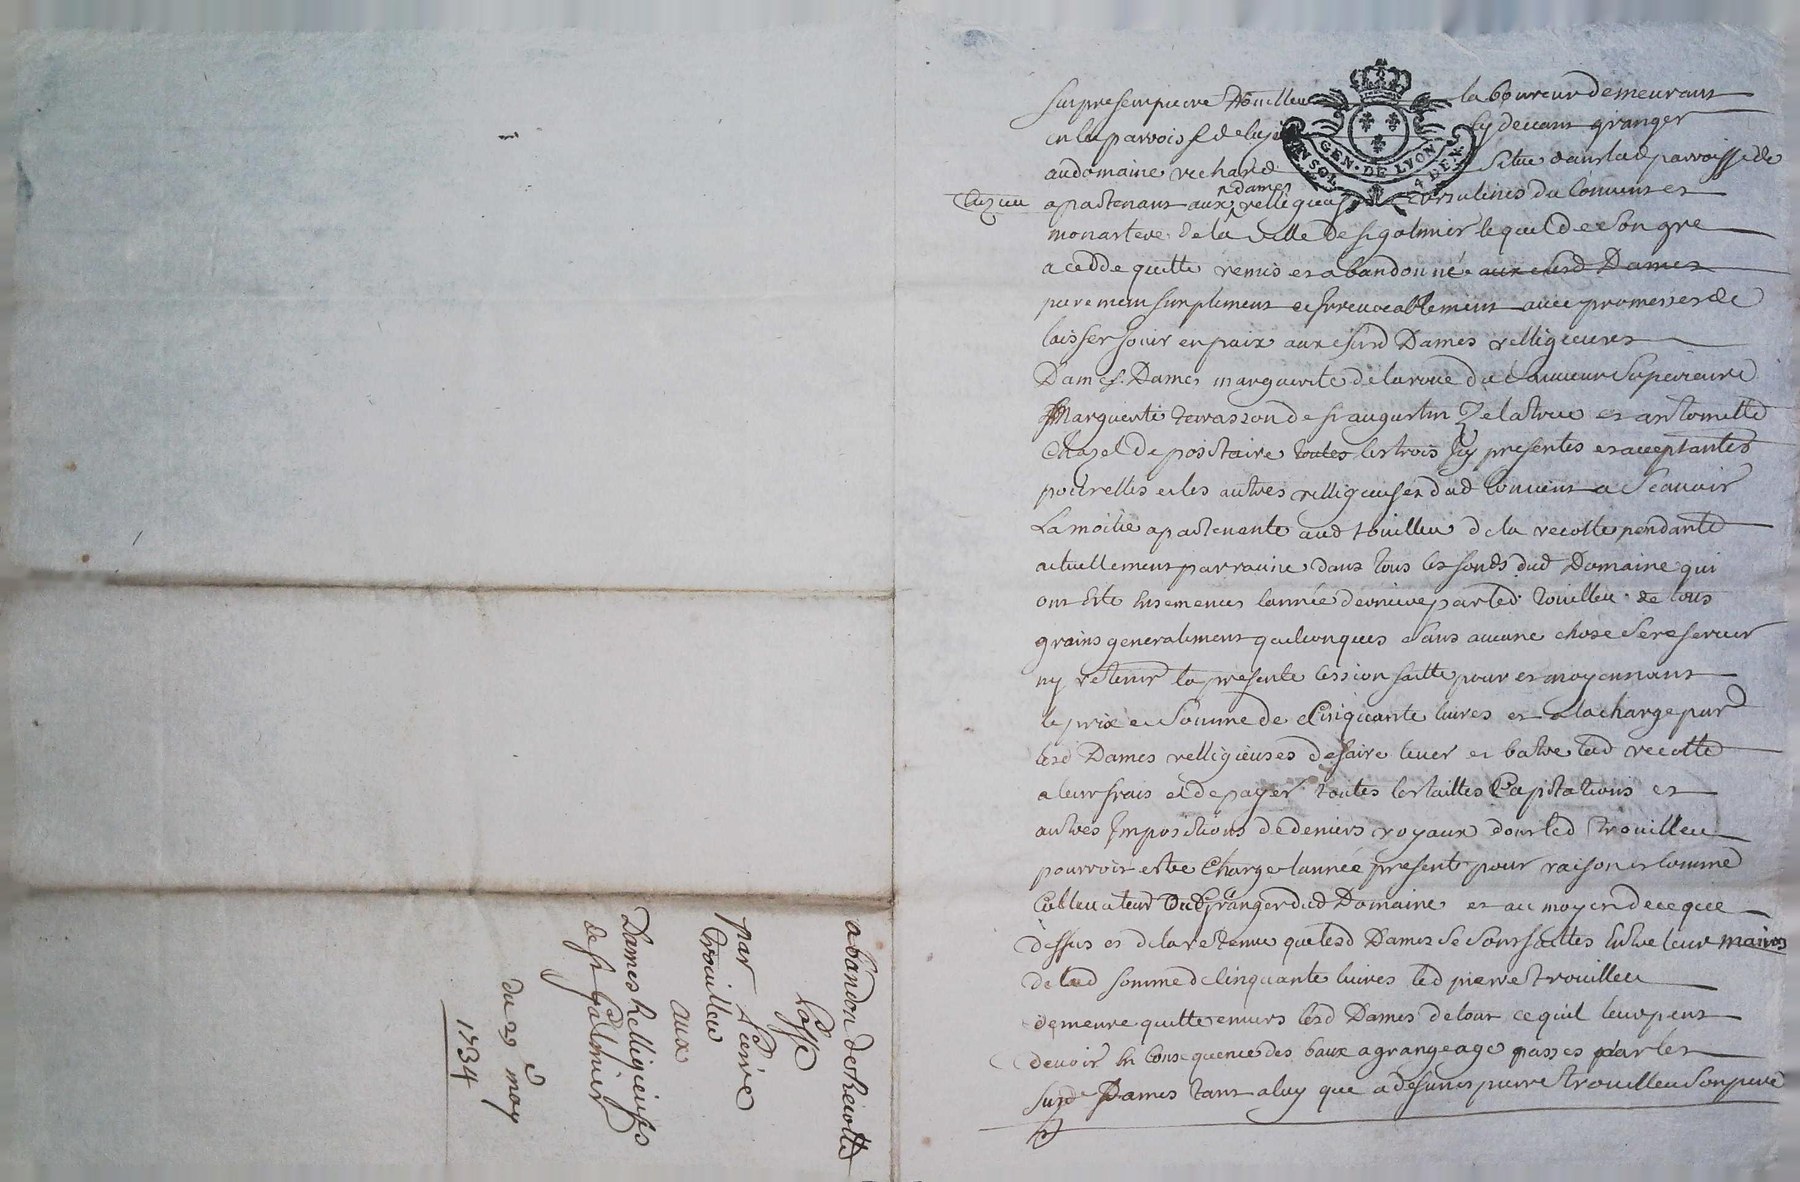 fut present pierre trouilleu laboureur demeurant
en la parroisse de luzieu cy devant granger
au domaine richard situé dans lad parroisse de
luzieu apartenant aux dames religieuses ursulines du couvent et
monastere de la ville de st galmier lequel de son gre
a cedde quitte remis et abandonné aux susd Dames
purement simplement et irrevocablement avec promesses de
laisser jouir en paix aux susd Dames relligieuses
Dames Dames marguerite de la roue du sauveur superieure
Marguerite terrasson de st augustin zelatrice et anthoinette
Chazel depositaire toutes les trois jcy presentes et acceptantes
pour elles et les autres relligieuses dud couvent a scavoir
La moitie apartenante aud trouilleu de la recolte pendante
actuellement par racine dans tous les fonds dud Domaine qui
ont esté ensemences lannée derniere par led trouilleu de tous
grains generalement quelconques sans aucune chose se reserver
ny retenir la presente cession faitte pour et moyennant
le prix et somme de Cinquante livres et a la charge par
lesd Dames relligieuses de faire lever et batre lad recolte
a leur frais et de payer toutes les tailles Capitations et
autres Jmpositions de deniers royaux dont led trouilleu
pourroit estre Chargé lannée presente pour raison et comme
Cultivateur Ou Granger dud Domaine et au moyen de ce que
dessus et de la retenue que lesd Dames se sont faittes entre leur mains
de lad somme de cinquante livres led pierre trouilleu
demeure quitte envers lesd Dames de tout ce quil leur peut
devoir en consequence des baux a grangeage passes par les
susd Dames tant a luy que a defunct pierre trouilleu son pere
abandon de recolte
passé
par Pierre
trouilleu
aux
Dames Relligieuses
de st Galmier
du 29 may
1734
GEN · DE LYON
UN SOL 4 DEN